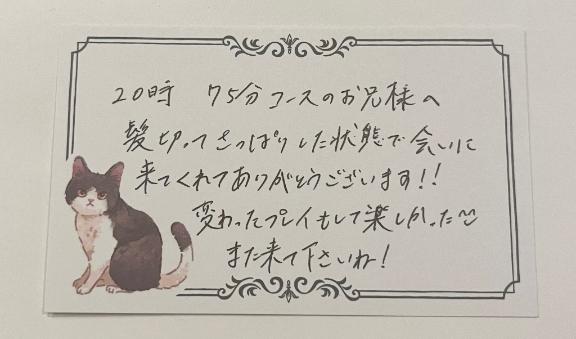 20時 75分コースのお兄様へ
髪切ってさっぱりした状態で会いに
来てくれてありがとうございます!!
変わったプレイもして楽しかった
また来て下さいね!